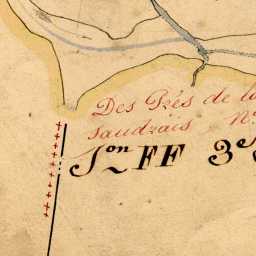 Des Prés de la
Saudrais N°
S.on FF 3e